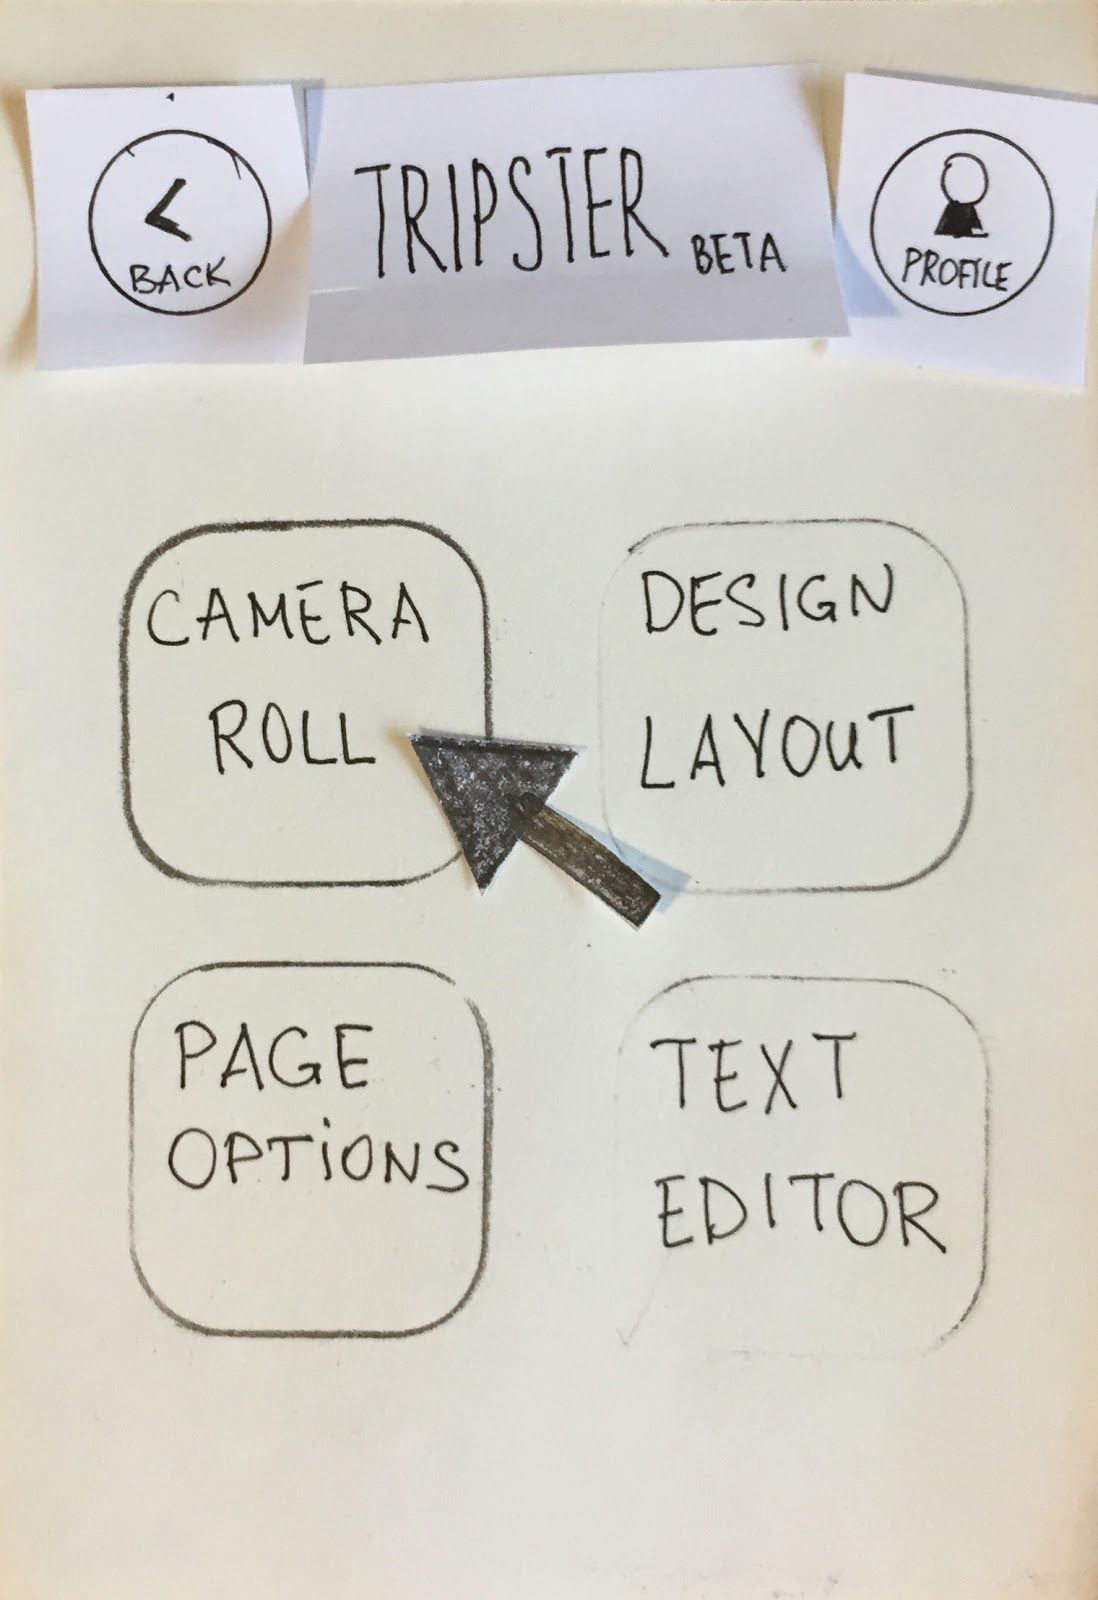 BACK
TRIPSTER BETA
PROFILE
CAMERA
ROLL
DESIGN
LAYOUT
PAGE
OPTiONS
TEXT
EDITOR